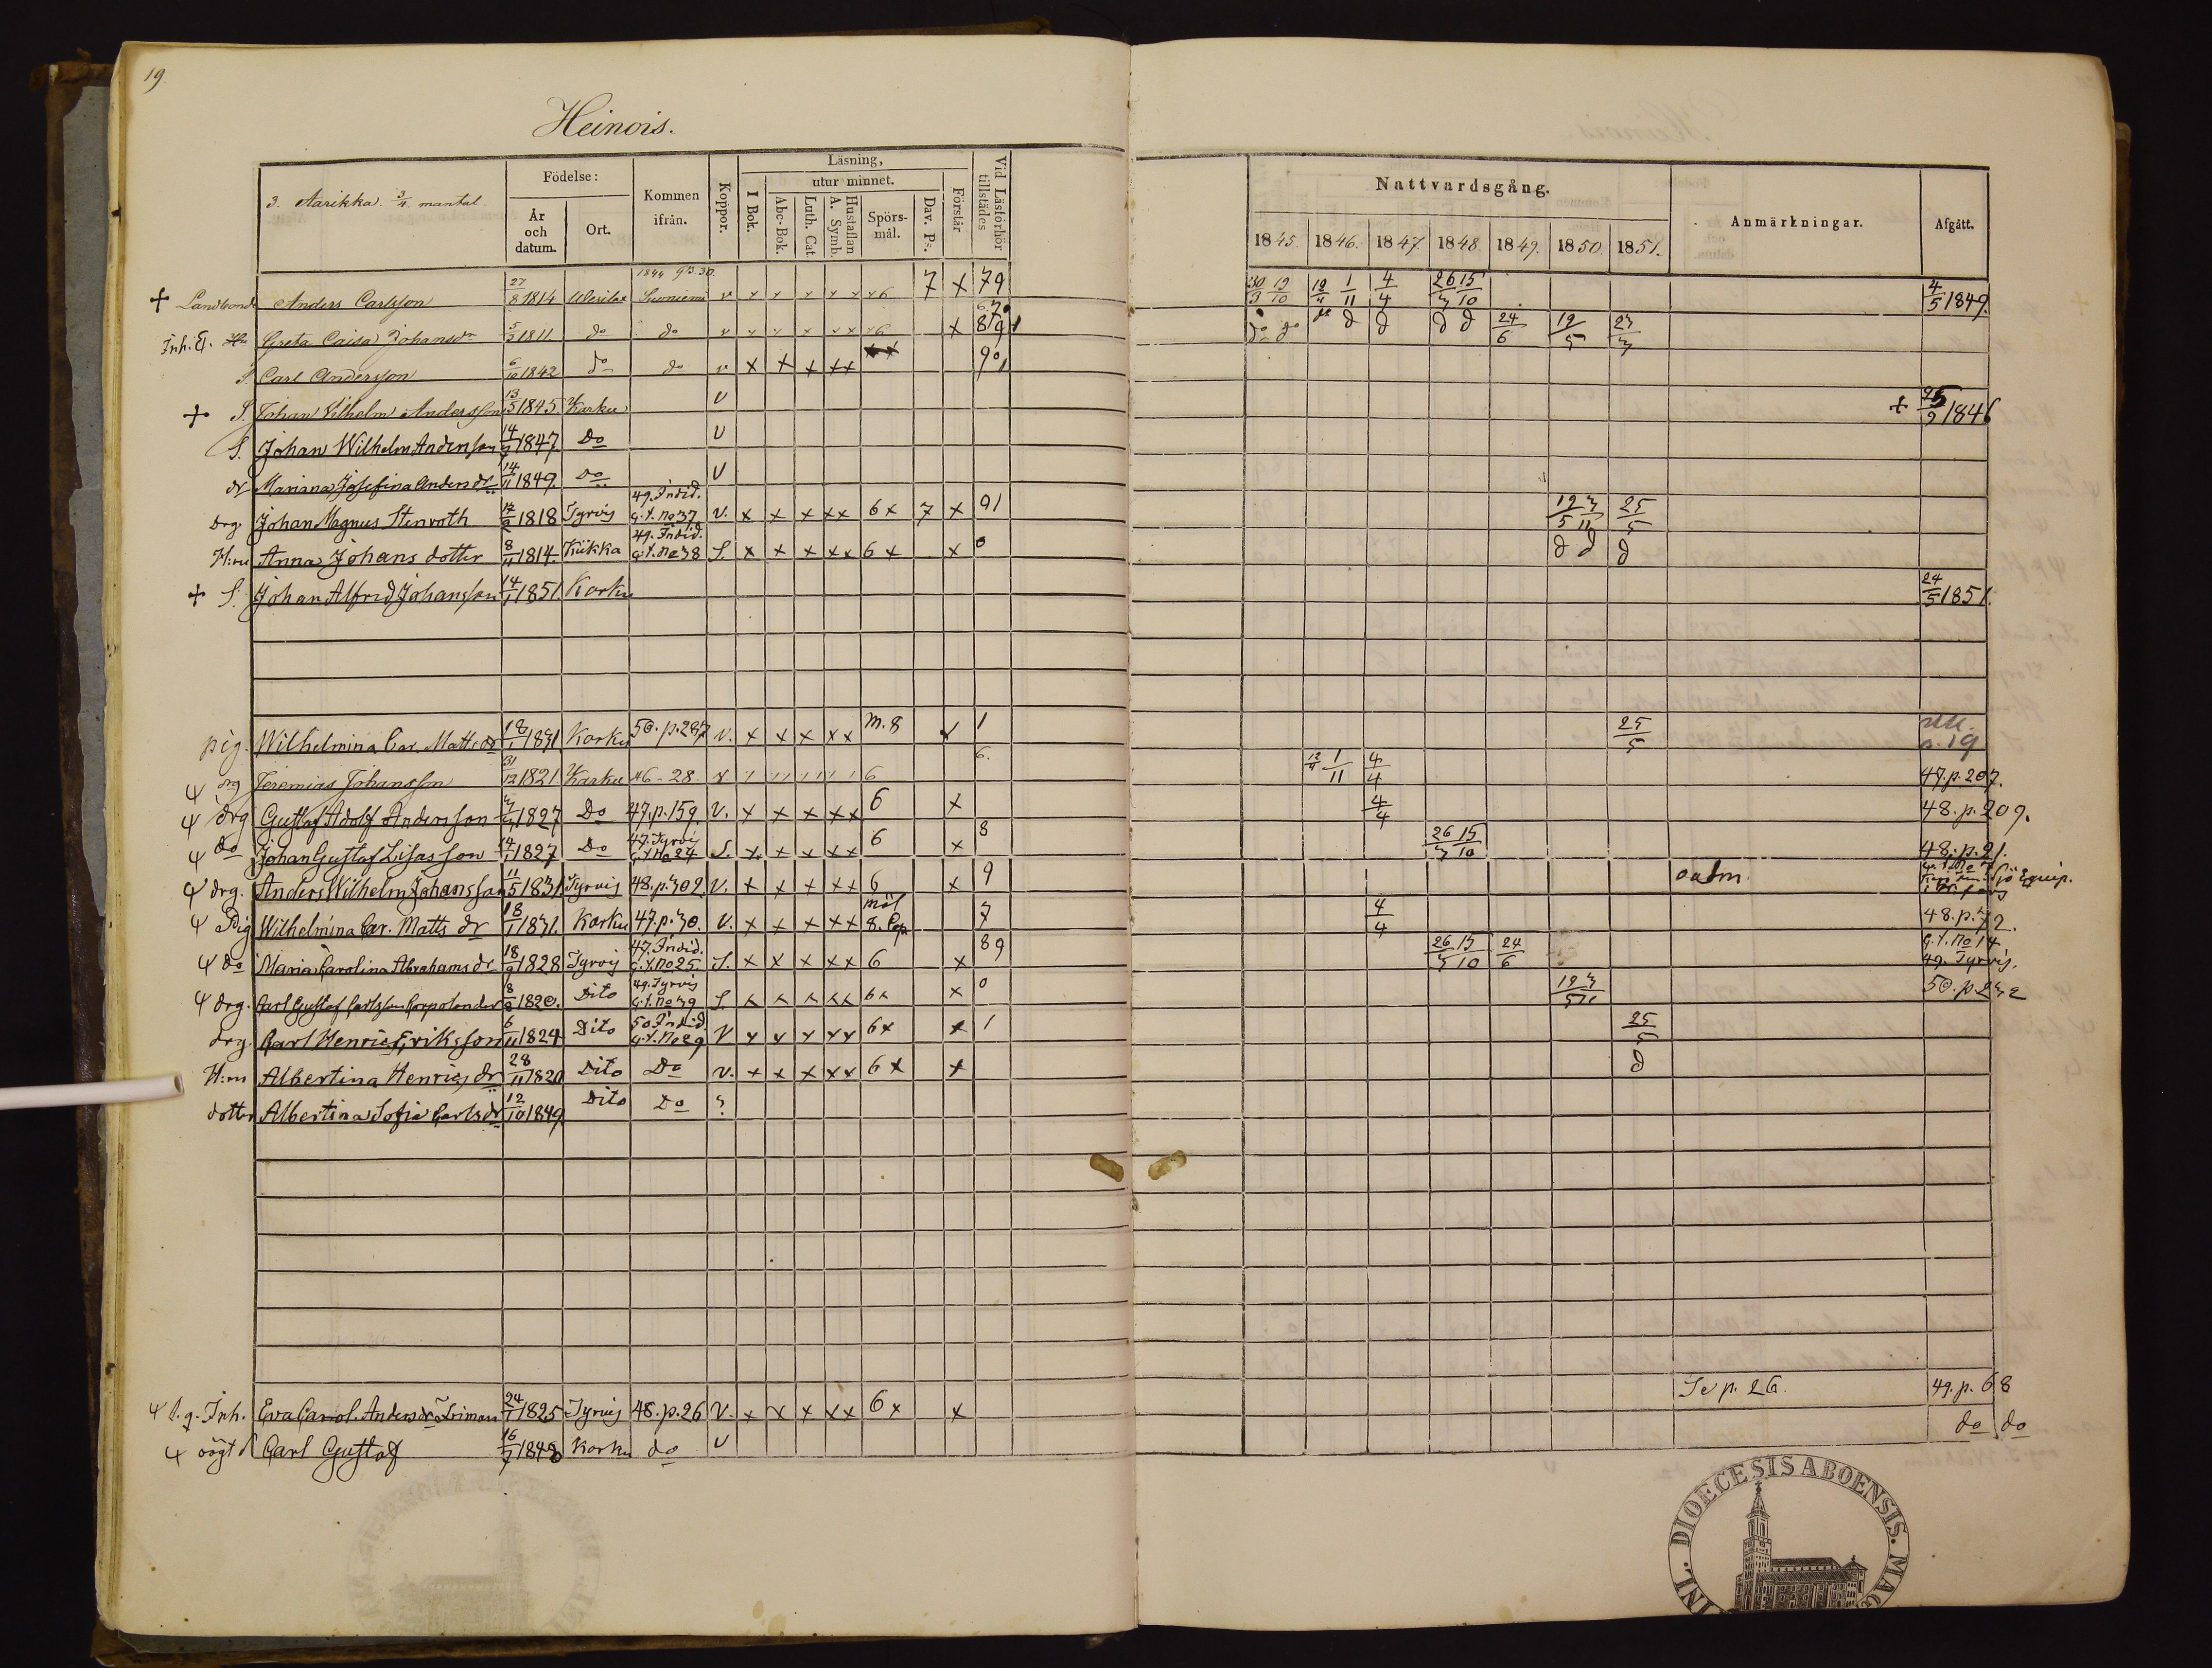 19.
Heinois.
3. Aarikka. 3/4 mantal
Födelse:
År och datum.
Ort.
Kommen ifrån.
Koppor.
Läsning,
I Bok.
utur minnet.
Abc-Bok.
Luth. Cat
Hustaflan A. Symb.
Spörs-mål.
Dav. Ps.
Förstår
Vid Läsförhör tillstädes
Nattvardsgång.
1845. 1846. 1847. 1848. 1849. 1850. 1851.
Anmärkningar.
Afgått.
+ Landbonde Anders Carlsson 27/8 1814 Wesilax Suoniemi v 6 7 x 79 12/4 1/11 4/4 26/3 15/10 4/5 1849.
Greta Caisa Johansdr 5/3 1811 do do v 6 x do do d d d d 24/6 19/5
S. Carl Andersson 6/10 1842 do do v x x x xx 90
+ S. Johan Vilhelm Andersson 13/5 1845 Karku v + 1846
S. Johan Wilhelm Andersson 1847 Do v
dr Mariana Josefina Andersdr 14/11 1849 Do v
Drg Johan Magnus Stenroth 1818 Tyrvis 49. Indid. G.t. No 37 v. x x x xx 6x 7 x 91 19/5 3/11 25/5
H:ru Anna Johans dotter 8/11 1814 Kiikka 49. Indid. G.t. No 38 S. x x x xx 6x x 0 d d d
+ S. Johan Alfred Johansson 14/1 1851 Karku 24/5 1851.
pig. Wilhelmina Car. Matts dr 18/1 1831 Karku 50. p. 287 v. x x x xx m. 8 x 1 25/5 p. 19
drg Jeremias Johansson 31/12 1821 Karku 46-28 v 6 6. 12/4 1/11 4/4 47. p. 207.
drg Gustaf Adolf Andersson 1827 Do 47. p. 159 v. x x x xx 6 x 4/4 48. p. 209.
Do Johan Gustaf Lisasson 14/1 1827 Do 47. Tyrvis G.t. No 24 S. x x x xx 6 x 8 26/3 15/10 48. p. 21.
drg. Anders Wilhelm Johansson 11/5 1831 Tyrvis 48. p. 302. v. x x x xx 6 x 9 oadm. Sjö Equip.
Pig Wilhelmina Car. Matts dr 18/1 1831. Karku 47. p. 30. v. x x x xx mål 8. Cap 7 4/4 48. p. 72.
Do Maria Carolina Abrahams dr 18/9 1828 Tyrvis 47. Indid. G.t. No 25. S. x x x xx 6 x 89 26/3 15/10 24/6 G.t. No 14. 49. Tyrvis.
drg. Carl Gustaf Carlsson 1820. Dito 49. Tyrvis G.t. No 39 S x x x xx 6x x 0 19/5 3/11 50. p. 232
drg. Carl Henric Eriksson 6/11 1824 Dito 50 Indid. G.t. No 29 v x x x xx 6x x 1 25/5
H:ru Albertina Henrics dr 28/11 1820 Dito Do v. x x x xx 6x x d
dotter Albertina Sofia Carlsdr 12/10 1849 Dito Do ?
Inh. Eva Carol. Andersdr Friman 24/1 1825 Tyrvis 48. p. 26 v. x x x xx 6x x Se p. 26. 49. p. 68
oägt d Carl Gustaf 16/7 1848 Karku do v do do
DIOECESIS ABOENSIS.